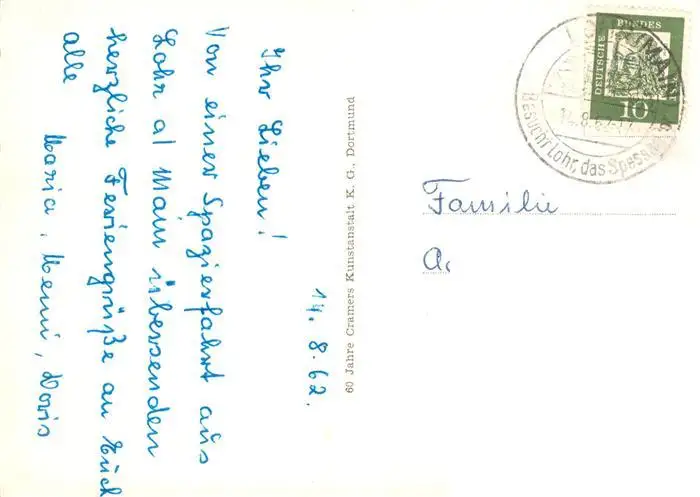 14. 8. 62.
Ihr Lieben!
Von einer Spazierfahrt aus
Lohr a/ Main übersenden
herzliche Feriengrüße an Euch
alle
Maria, Menni, Doris
60 Jahre Cramers Kunstanstalt K. G., Dortmund
DEUTSCHE BUNDES
10
MAIN
14.8.62-17
Besucht Lohr, das Spess
Familie
A.